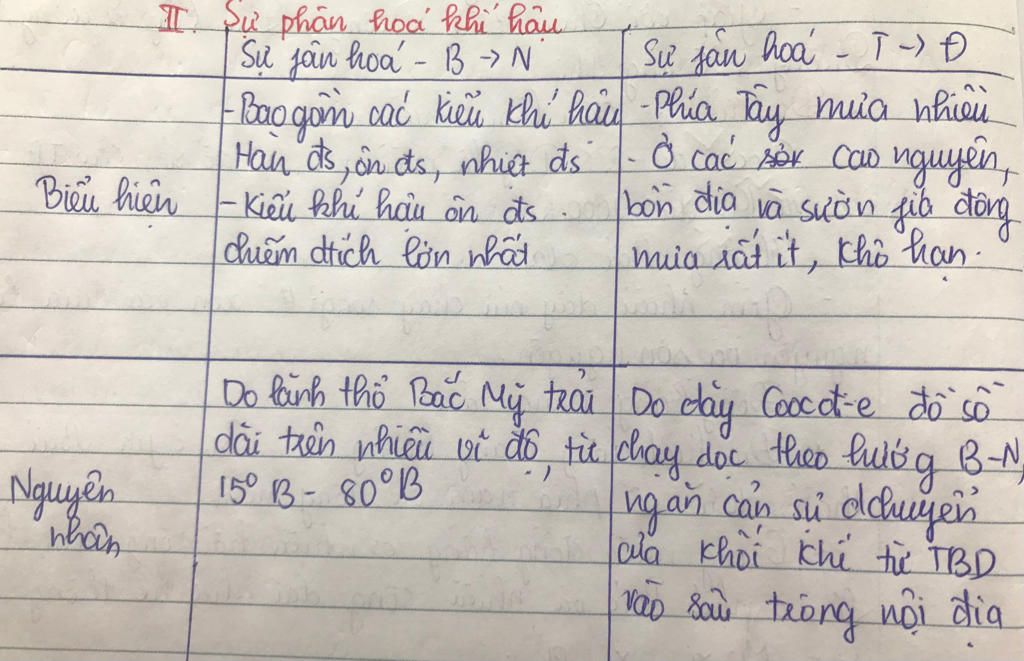 II. Sự phân hoá khí hậu
Sự fân hoá - B → N
Sự fân hoá - T → Đ
Biểu hiện
- Bao gồm các kiểu khí hậu
Hàn đs, ôn đs, nhiệt đs
- Kiểu khí hậu ôn đs
chiếm dtích lớn nhất
- Phía Tây mưa nhiều
- Ở các cao nguyên,
bồn địa và sườn fía đông
mưa rất ít, khô hạn.
Nguyên
nhân
Do lãnh thổ Bắc Mỹ trải
dài trên nhiều vĩ độ, từ
15° B - 80° B
Do dãy Coocđi-e đồ sộ
chạy dọc theo hướg B-N,
ngăn cản sự dchuyển
của khối khí từ TBD
vào sâu trong nội địa